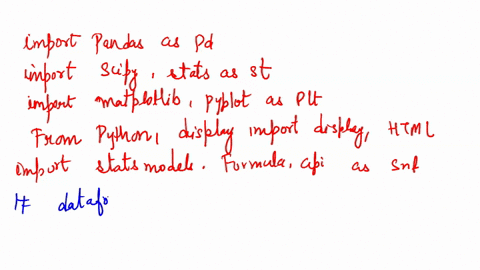 import Pandas as Pd
import Scipy, stats as st
import matplotlib, pyplot as Plt
From Python, display import display, HTML
import statsmodels. Formula. api as snf
# datafr